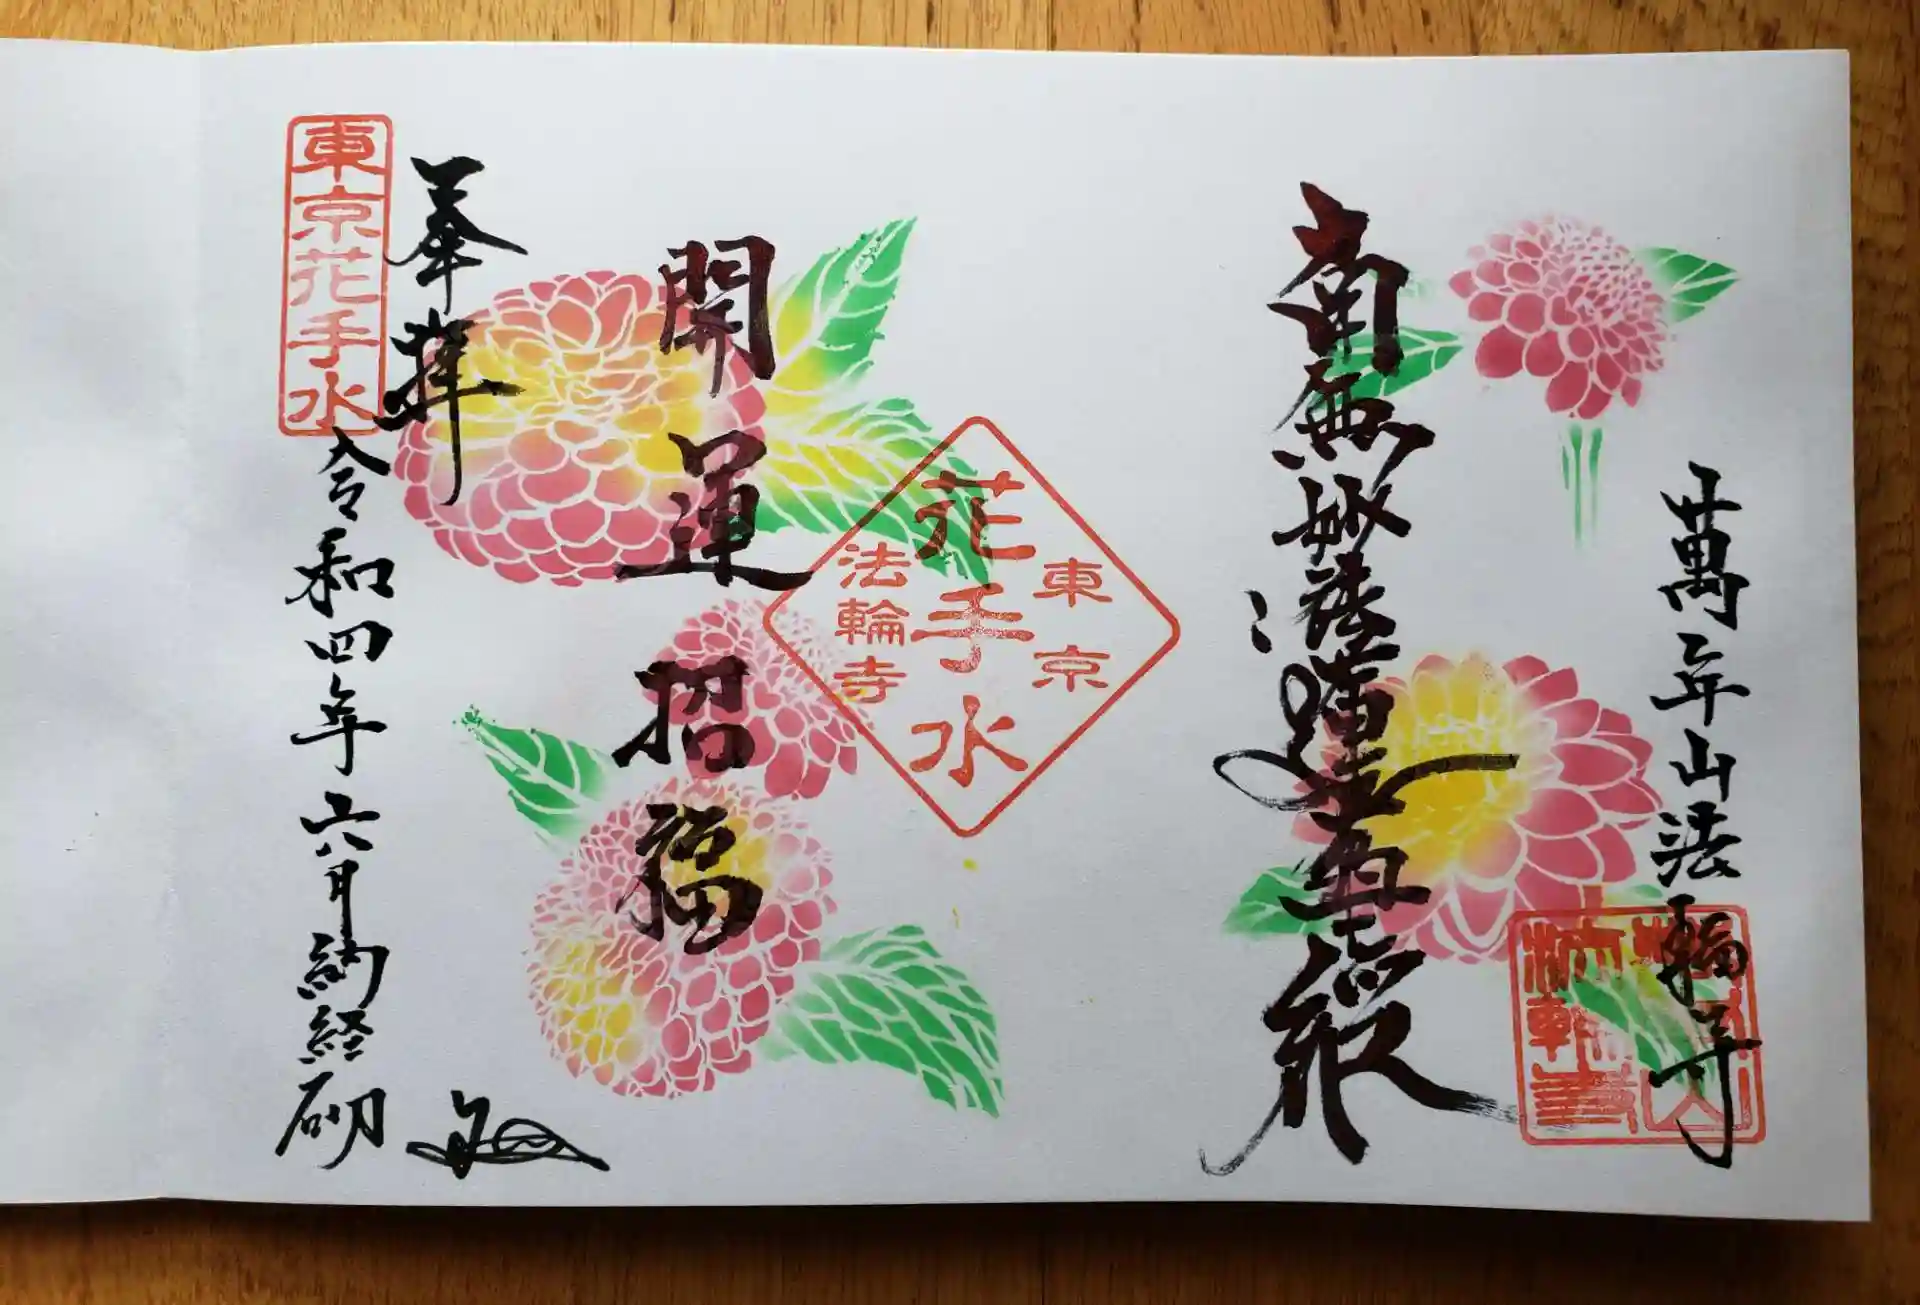 萬年山法輪寺
南無妙法蓮華経
東京
花手水
法輪寺
開運招福
奉拝
東京花手水
令和四年六月納経